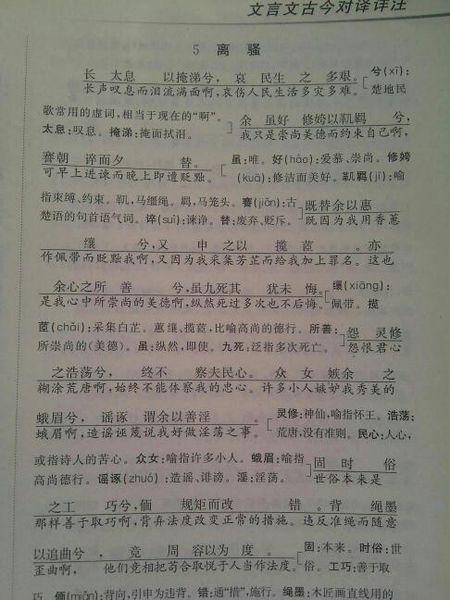 文言文古今对译详注
5 离骚
长 太息 以掩涕兮，哀 民生 之 多艰。 兮(xī)：
长声叹息而泪流满面啊，哀伤人民生活多灾多难。 楚地民
歌常用的虚词，相当于现在的“啊”。 余 虽好 修姱以鞿羁 兮，
太息：叹息。掩涕：掩面拭泪。 我只是崇尚美德而约束自己啊，
謇朝 谇而夕 替。 虽：唯。好(hào)：爱慕、崇尚。修姱
可早上进谏而晚上即遭贬黜。 (kuā)：修洁而美好。鞿羁(jī)：喻
指束缚、约束。鞿，马缰绳。羁，马笼头。謇(jiǎn)：古 既替余以蕙
楚语的句首语气词。谇(suì)：谏诤。替：废弃、贬斥。 既因为我用香蕙
纕 兮，又 申 之以 揽 茝。亦
作佩带而贬黜我啊，又因为我采集芳芷而给我加上罪名。这也
余心之所 善 兮，虽九死其 犹未 悔。 纕(xiāng)：
是我心中所崇尚的美德啊，纵然死过多次也不后悔。 佩带。揽
茝(chǎi)：采集白芷。蕙纕、揽茝，比喻高尚的德行。所善： 怨 灵修
所崇尚的(美德)。虽：纵然，即使。九死：泛指多次死亡。 怨恨君心
之浩荡兮， 终不 察夫民心。众 女 嫉余 之
糊涂荒唐啊，始终不能体察我的忠心。许多小人嫉妒我秀美的
蛾眉兮，谣诼 谓余以善淫 。 灵修：神仙，喻指怀王。浩荡：
蛾眉啊，造谣诬蔑说我好做淫荡之事。 荒唐，没有准则。民心：人心，
或指诗人的苦心。众女：喻指许多小人。蛾眉：喻指 固 时 俗
高尚德行。谣诼(zhuó)：造谣、诽谤。淫：淫荡。 世俗本来是
之工 巧兮，偭 规矩而改 错。背 绳墨
那样善于取巧啊，背弃法度改变正常的措施。违反准绳而随意
以追曲兮， 竞 周 容以为 度。 固：本来。时俗：世
歪曲啊， 他们竞相把苟合取悦于人当作法度。 俗。工巧：善于取
巧。偭(miǎn)：背向，引申为违背。错：通“措”，施行。绳墨：木匠画直线用的